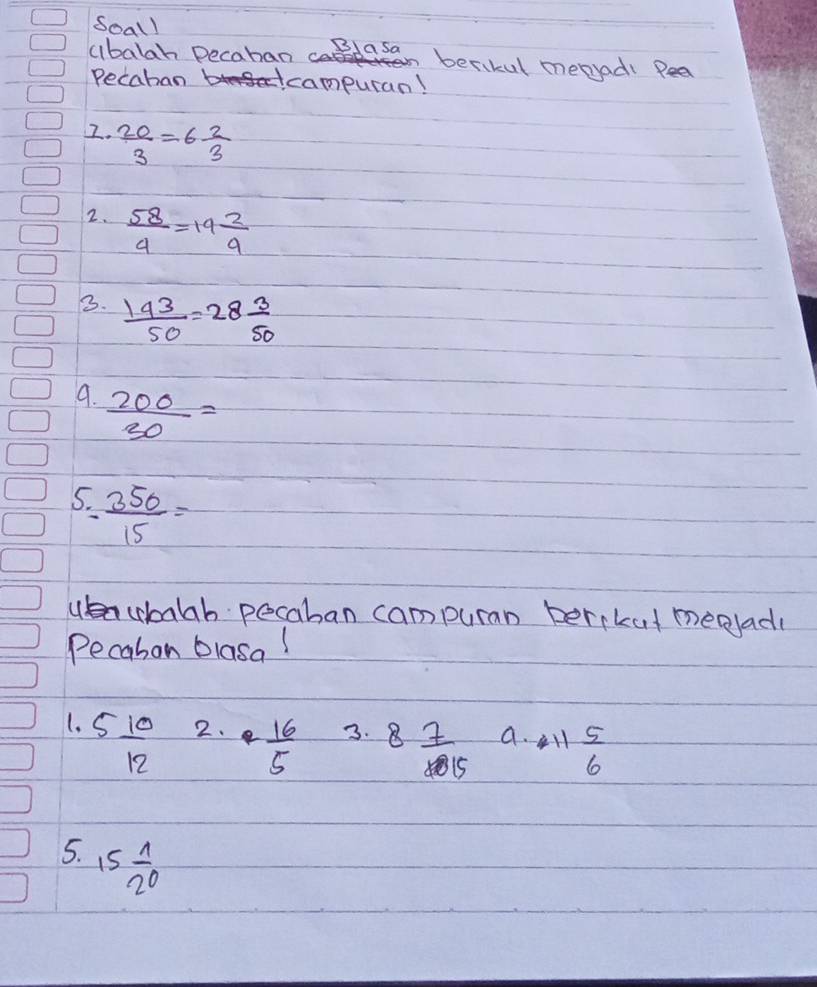 Soal!
Ubalah pecahan Biasa berikut menjadi
pecahan campuran!
1. 20/3 = 6 2/3
2. 58/4 = 14 2/4
3. 143/50 = 28 3/50
4. 200/30 =
5. 350/15 =
ubalah pecahan campuran berikut menjadi
pecahan biasa!
1. 5 10/12 2. 16/5 3. 8 7/15 4. 11 5/6
5. 15 1/20